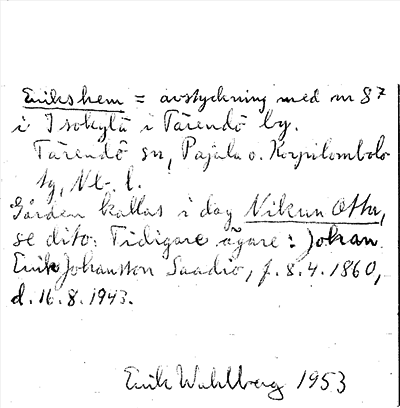 Erikshem = avstyckning med nr 8⁷
i Isokylä i Tärendö by.
Tärendö sn, Pajala o. Korpilombolo
tg, Nb. l.
Gården kallas i dag Nikun Ottu,
se dito. Tidigare ägare: Johan
Erik Johansson Saadio, f. 8.4.1860,
d. 16.8.1943.
Erik Wahlberg 1953